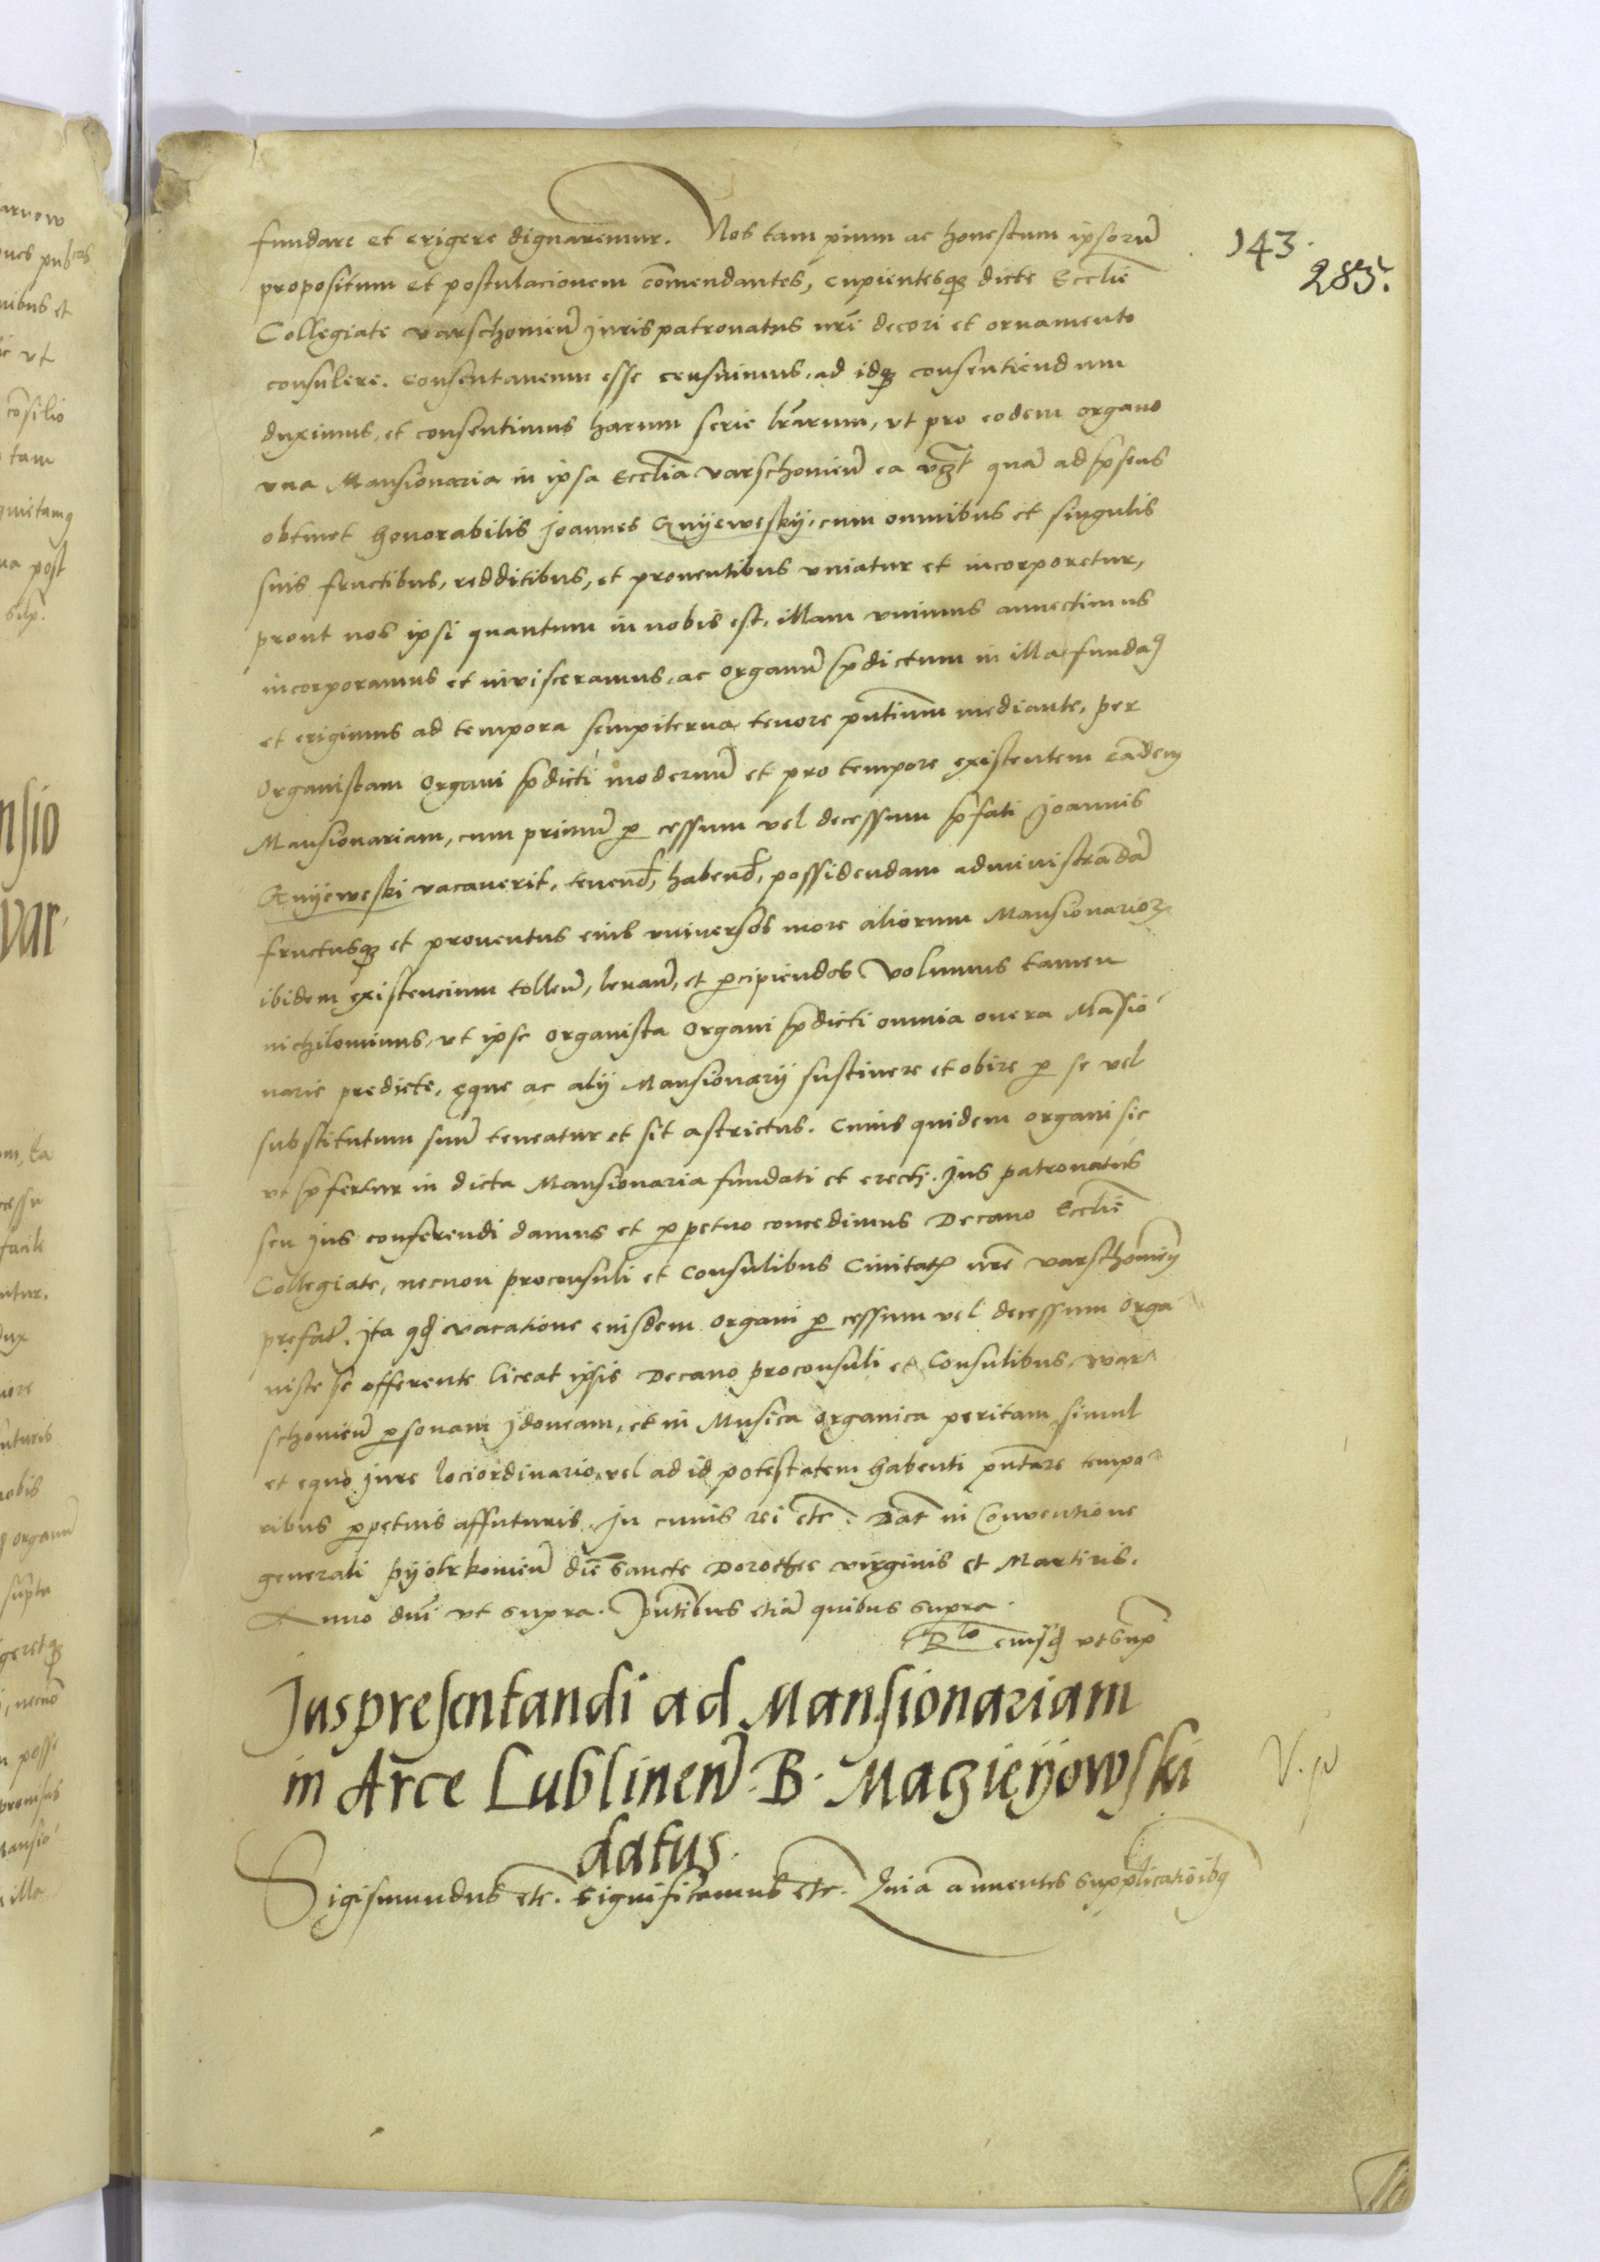 143.
285.
fundare et erigere dignaremur. Nos tam pium ac honestum ipsorū
propositum et postulacionem cōmendantes, cupientesqꝫ dicte Ecclīe
Collegiate varschouieñ Jurispatronatus nrī decori et ornamento
consulere. consentaneum esse censuimus, ad idqꝫ consentiendum
duximus, et consentimus harum serie lrārum, vt pro eodem organo
vna Mansionaria in ipsa Ecclīa varschouieñ ea quā ad p̄sens
obtinet honorabilis Joannes Gnyewesky, cum omnibus et singulis
suis fructibus, redditibus, et prouentibus vniatur et incorporetur,
prout nos ipsi quantum in nobis est, illam vnimus annectimus
incorporamus et inuisceramus, ac organū p̄dictum in illa fundamꝰ
et erigimus ad tempora sempiterna tenore pn̄tium mediante, per
Organistam Organi p̄dicti modernū et pro tempore existentem eādem
Mansionariam, cum primū ꝑ cessum vel decessum p̄fati Joannis
Gnyeweski vacauerit, tenend̄, habend̄, possidendam administrādā
fructusqꝫ et prouentus eius vniuersos more aliorum Mansionarioꝝ
ibidem existencium tolleñ, leuañ, et ꝑcipiendos Volumus tamen
nichilominus, vt ipse organista Organi p̄dicti omnia onera Māsio
narie predicte, ęque ac alij Mansionarij sustinere et obire ꝑ se vel
substitutum suū teneatur et sit astrictus. Cuius quidem organi sic
vt p̄fertur in dicta Mansionaria fundati et erecti. Jus patronatus
seu Jus conferendi damus et ꝑpetuo concedimus Decano Ecclīe
Collegiate, necnon proconsuli et Consulibus Ciuitatꝭ nrē varschouieñ
prefatē. Jta qđ vacatione eiusdem organi ꝑ cessum vel decessum Orga
niste se offerente liceat ipsis Decano proconsuli et Consulibus var
schouieñ ꝑsonam Jdoneam, et in Musica organica peritam simul
et equo Jure lociordinario, vel ad id potestatem habenti pn̄tare tempo
ribus ꝑpetuis affuturis. Jn cuius rei etc̄. Dat̄ in Conuentione
generali pyotrkouieñ diē Sancte Dorothee virginis et Martiris.
Anno dnī vt supra. Pn̄tibus etiā quibus supra.
R̄lo eiusđ vt sup̄
Jus presentandi ad Mansionariam
in Arce Lublineñ B. Magzieyowski
datus.
V. p
Sigismundus etc̄. Significamus etc̄. Quia ānuentes supplicatōibꝫ